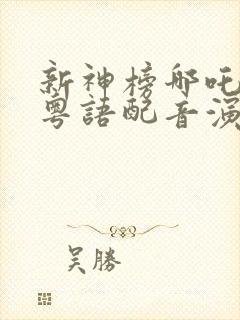 新神榜哪吒
粵語配音演
吴勝